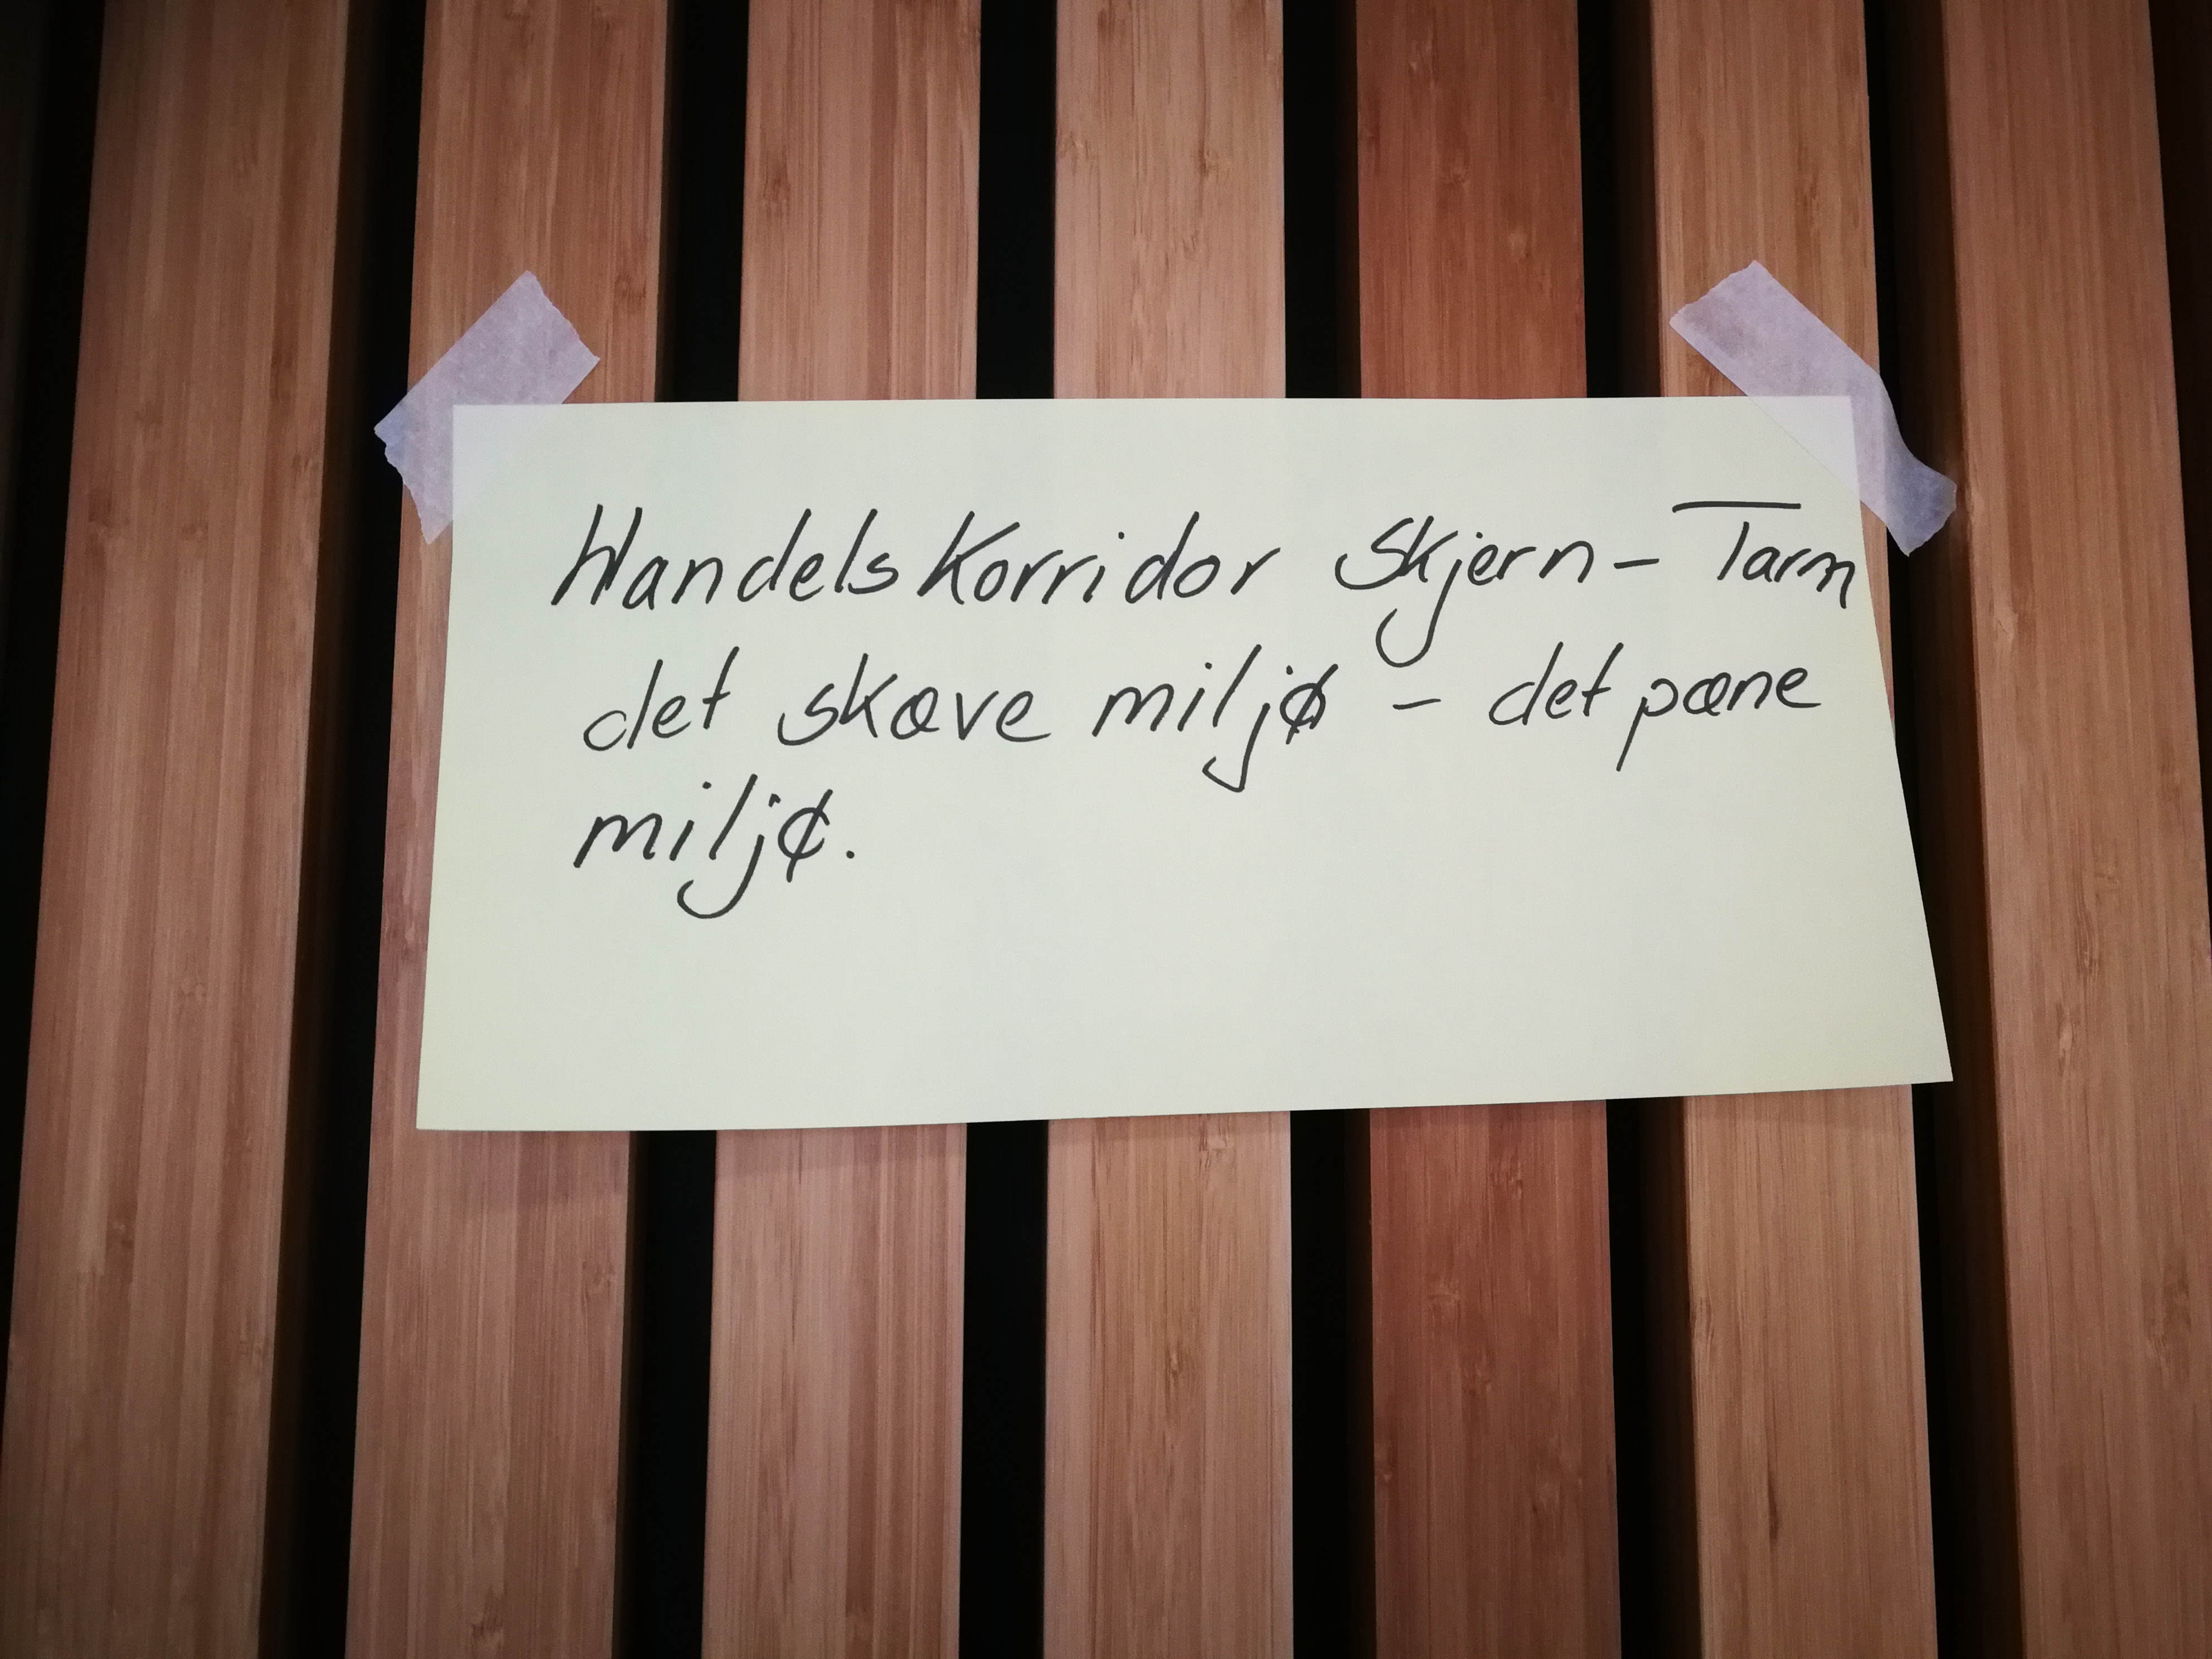 Handelskorridor Skjern - Tarm
det skæve miljø - det pæne
miljø.